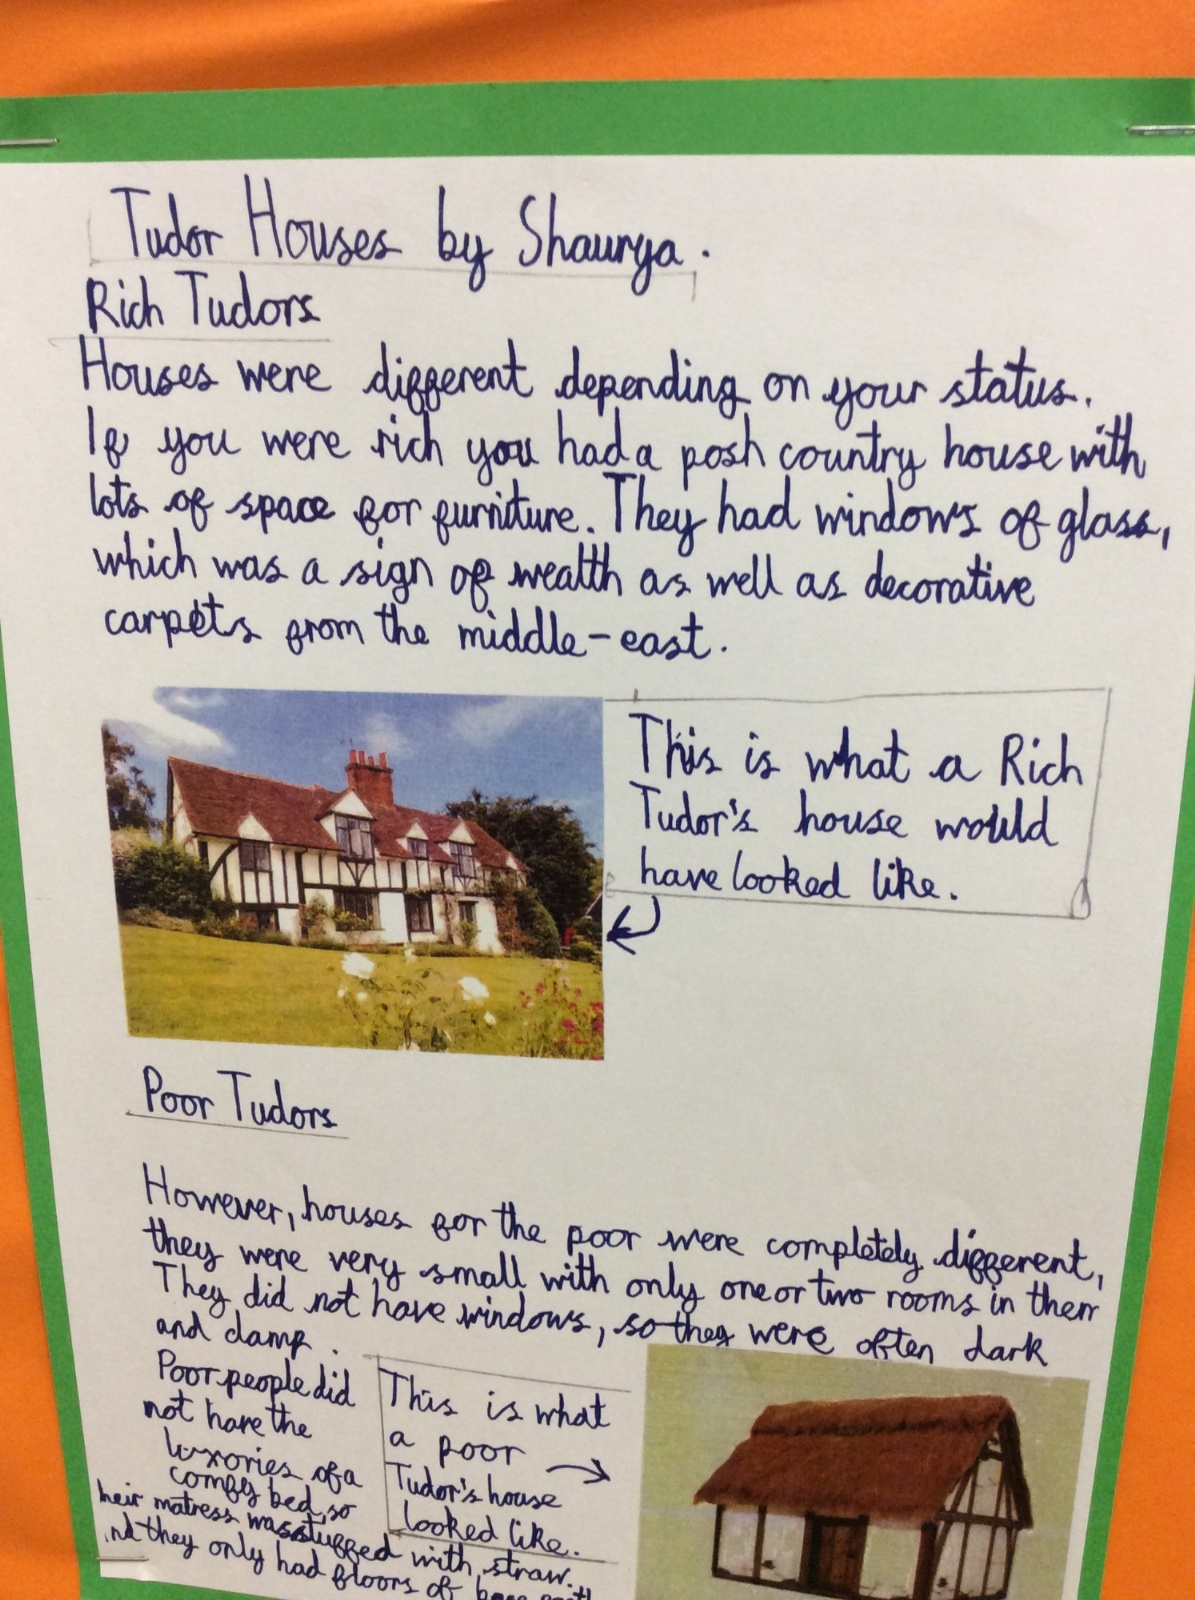 Tudor Houses by Shaurya.
Rich Tudors
Houses were different depending on your status.
If you were rich you had a posh country house with
lots of space for furniture. They had windows of glass,
which was a sign of wealth as well as decorative
carpets from the middle-east.
This is what a Rich
Tudor's house would
have looked like.
Poor Tudors
However, houses for the poor were completely different,
they were very small with only one or two rooms in them
They did not have windows, so they were often dark
and damp.
Poor people did
not have the
luxories of a
comfy bed, so
heir matress was stuffed with straw.
nd they only had floors of
This is what
a poor
Tudor's house
looked like.